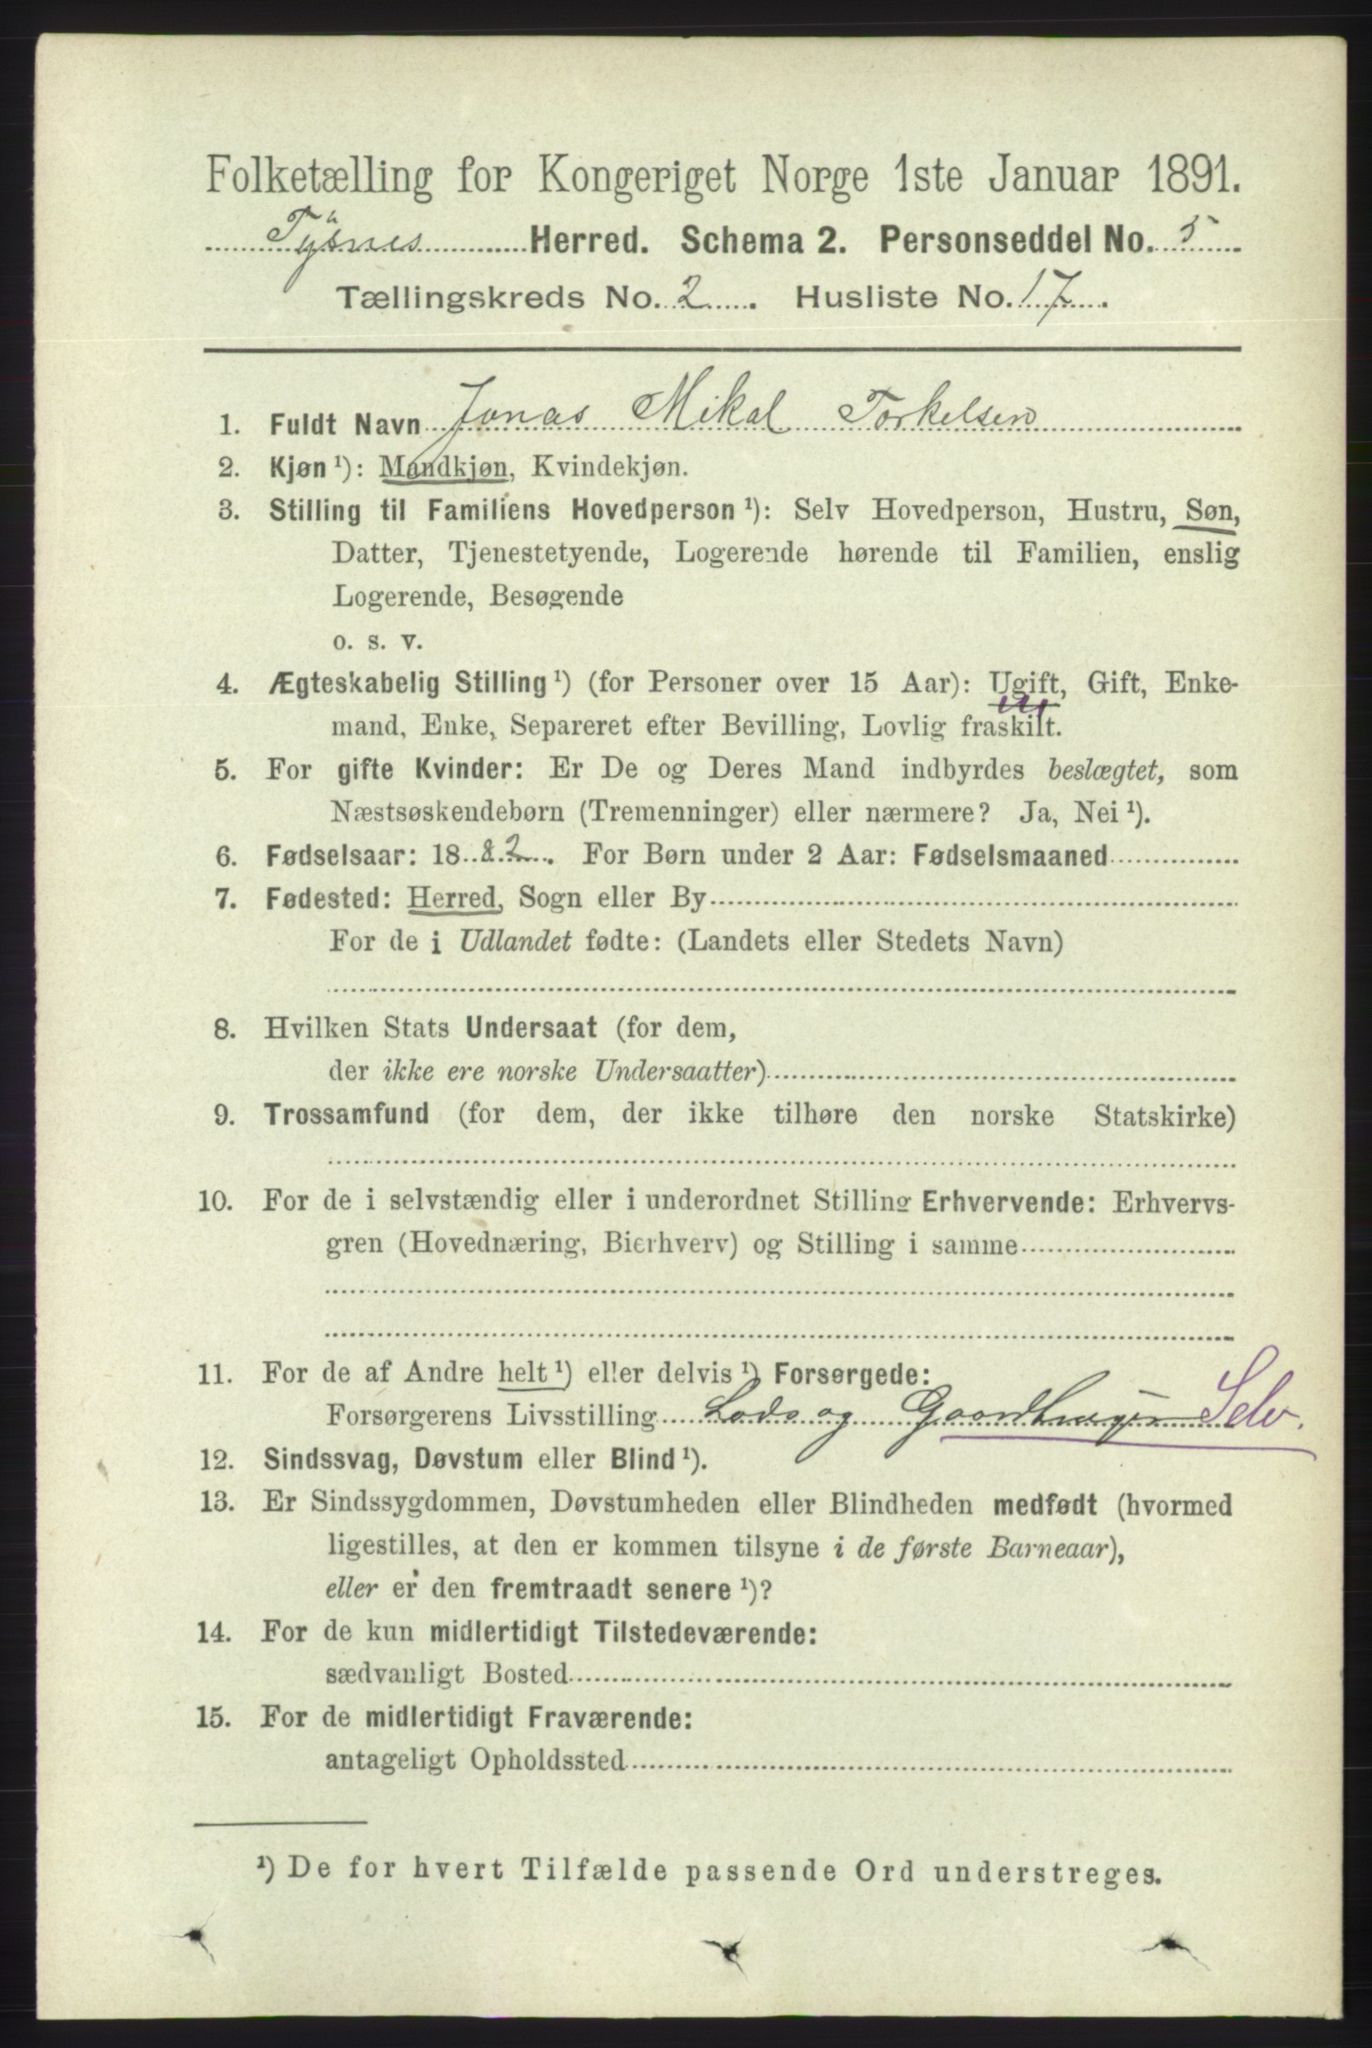 Folketælling for Kongeriget Norge 1ste Januar 1891.
Tysnes Herred. Schema 2. Personseddel No. 5
Tællingskreds No. 2. Husliste No. 17.
1. Fuldt Navn Jonas Mikal Torkelsen
2. Kjøn ¹): Mandkjøn, Kvindekjøn.
3. Stilling til Familiens Hovedperson ¹): Selv Hovedperson, Hustru, Søn,
Datter, Tjenestetyende, Logerende hørende til Familien, enslig
Logerende, Besøgende
o. s. v.
4. Ægteskabelig Stilling ¹) (for Personer over 15 Aar): Ugift, Gift, Enke-
mand, Enke, Separeret efter Bevilling, Lovlig fraskilt.
5. For gifte Kvinder: Er De og Deres Mand indbyrdes beslægtet, som
Næstsøskendebørn (Tremenninger) eller nærmere? Ja, Nei ¹).
6. Fødselsaar: 1882. For Børn under 2 Aar: Fødselsmaaned
7. Fødested: Herred, Sogn eller By
For de i Udlandet fødte: (Landets eller Stedets Navn)
8. Hvilken Stats Undersaat (for dem,
der ikke ere norske Undersaatter)
9. Trossamfund (for dem, der ikke tilhøre den norske Statskirke)
10. For de i selvstændig eller i underordnet Stilling Erhvervende: Erhvervs-
gren (Hovednæring, Bierhverv) og Stilling i samme
11. For de af Andre helt ¹) eller delvis ¹) Forsørgede:
Forsørgerens Livsstilling Lods og Gaardbruger Selv.
12. Sindssvag, Døvstum eller Blind ¹).
13. Er Sindssygdommen, Døvstumheden eller Blindheden medfødt (hvormed
ligestilles, at den er kommen tilsyne i de første Barneaar),
eller er den fremtraadt senere ¹)?
14. For de kun midlertidigt Tilstedeværende:
sædvanligt Bosted
15. For de midlertidigt Fraværende:
antageligt Opholdssted
¹) De for hvert Tilfælde passende Ord understreges.